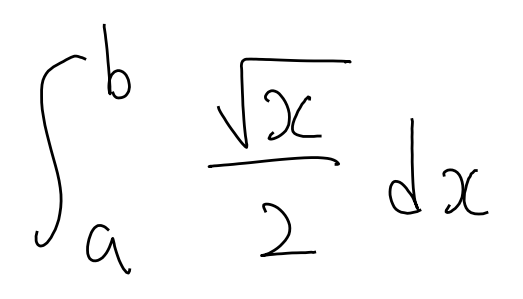 ∫_a^b √x/2 dx